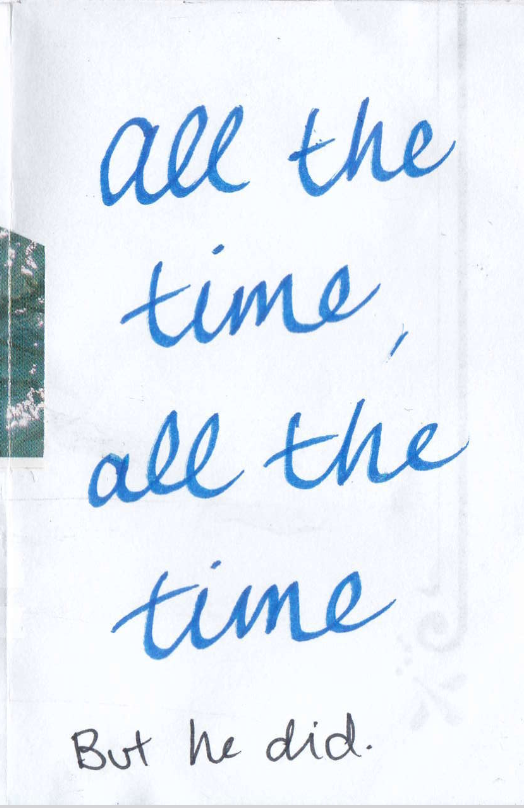 all the
time,
all the
time
But he did.